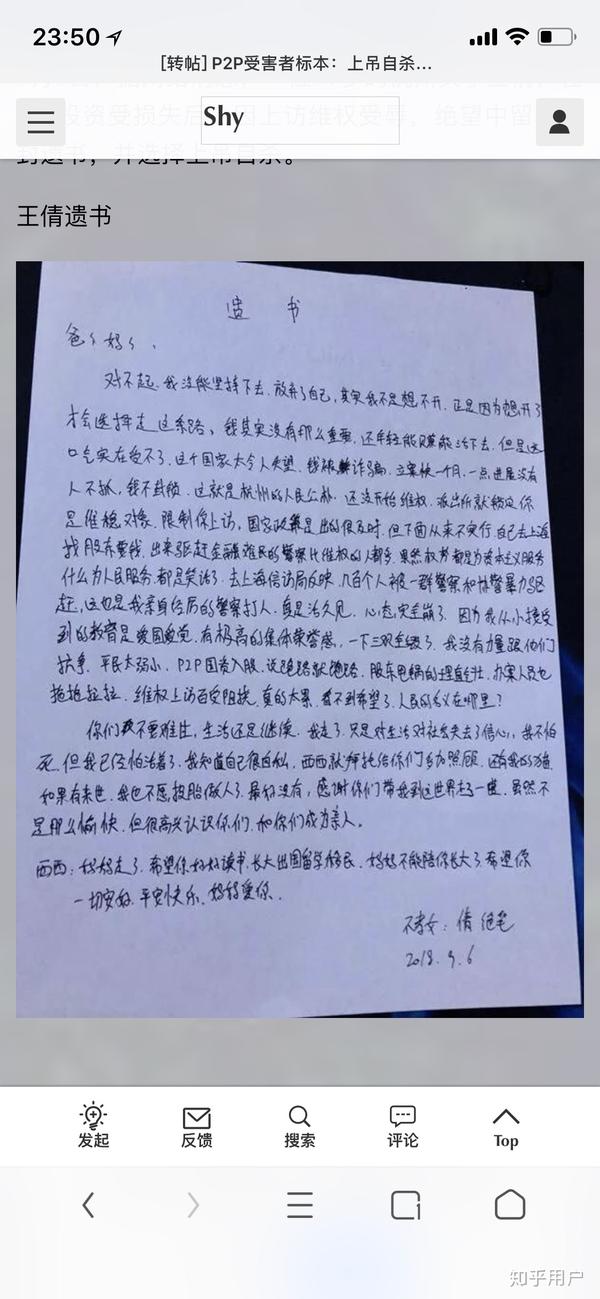 23:50
[转帖] P2P受害者标本：上吊自杀...
Shy
投资受损失后 因上访维权受辱，绝望中留
封遗书，并选择上吊自杀。
王倩遗书
遗 书
爸爸妈妈、
对不起，我没能坚持下去，放弃了自己，其实我不是想不开，正是因为想开了
才会选择走这条路、钱其实没有那么重要，还年轻能赚能活下去，但是这
口气实在受不了，这个国家太令人失望，钱被诈骗，立案快一个月，一点进展没有
人不抓，钱不封锁，这就是杭州的人民公仆，还没开始维权，派出所就锁定你
是维稳对象，限制你上访，国家政策是出的很及时，但下面从来不实行，自己去上海
找股东要钱，出来驱赶金融难民的警察比维权的人都多，果然权势都是为资本主义服务
什么为人民服务，都是笑话了，去上海信访局反映，几百个人被一群警察和协警暴力驱
赶，这也是我亲身经历的警察打人，真是活久见，心态完全崩了，因为我从小接受
到的教育是爱国爱党，有极高的集体荣誉感，一下三观全毁了，我没有力量跟他们
抗争，平民太弱小，P2P国资入股，说跑路就跑路，股东甩锅的理直气壮，办案人员也
拖拖拉拉，维权上访百受阻扰，真的太累，看不到希望了，人民的名义在哪里？
你们不要难过，生活还是继续，我走了，只是对生活对社会失去了信心，我不怕
死，但我已经怕活着了，我知道自己很自私，西西就拜托给你们帮照顾，还有我的
如果有来世，我也不愿投胎做人了，最好没有，感谢你们带我到这世界走了一遭，虽然不
是那么愉快，但很高兴认识你们，和你们成为亲人。
西西：妈妈走了，希望你好好读书，长大出国留学移民，妈妈不能陪你长大了，希望你
一切安好，平安快乐，妈妈爱你。
不孝女：倩 绝笔
2018.9.6
发起
反馈
搜索
评论
Top
知乎用户